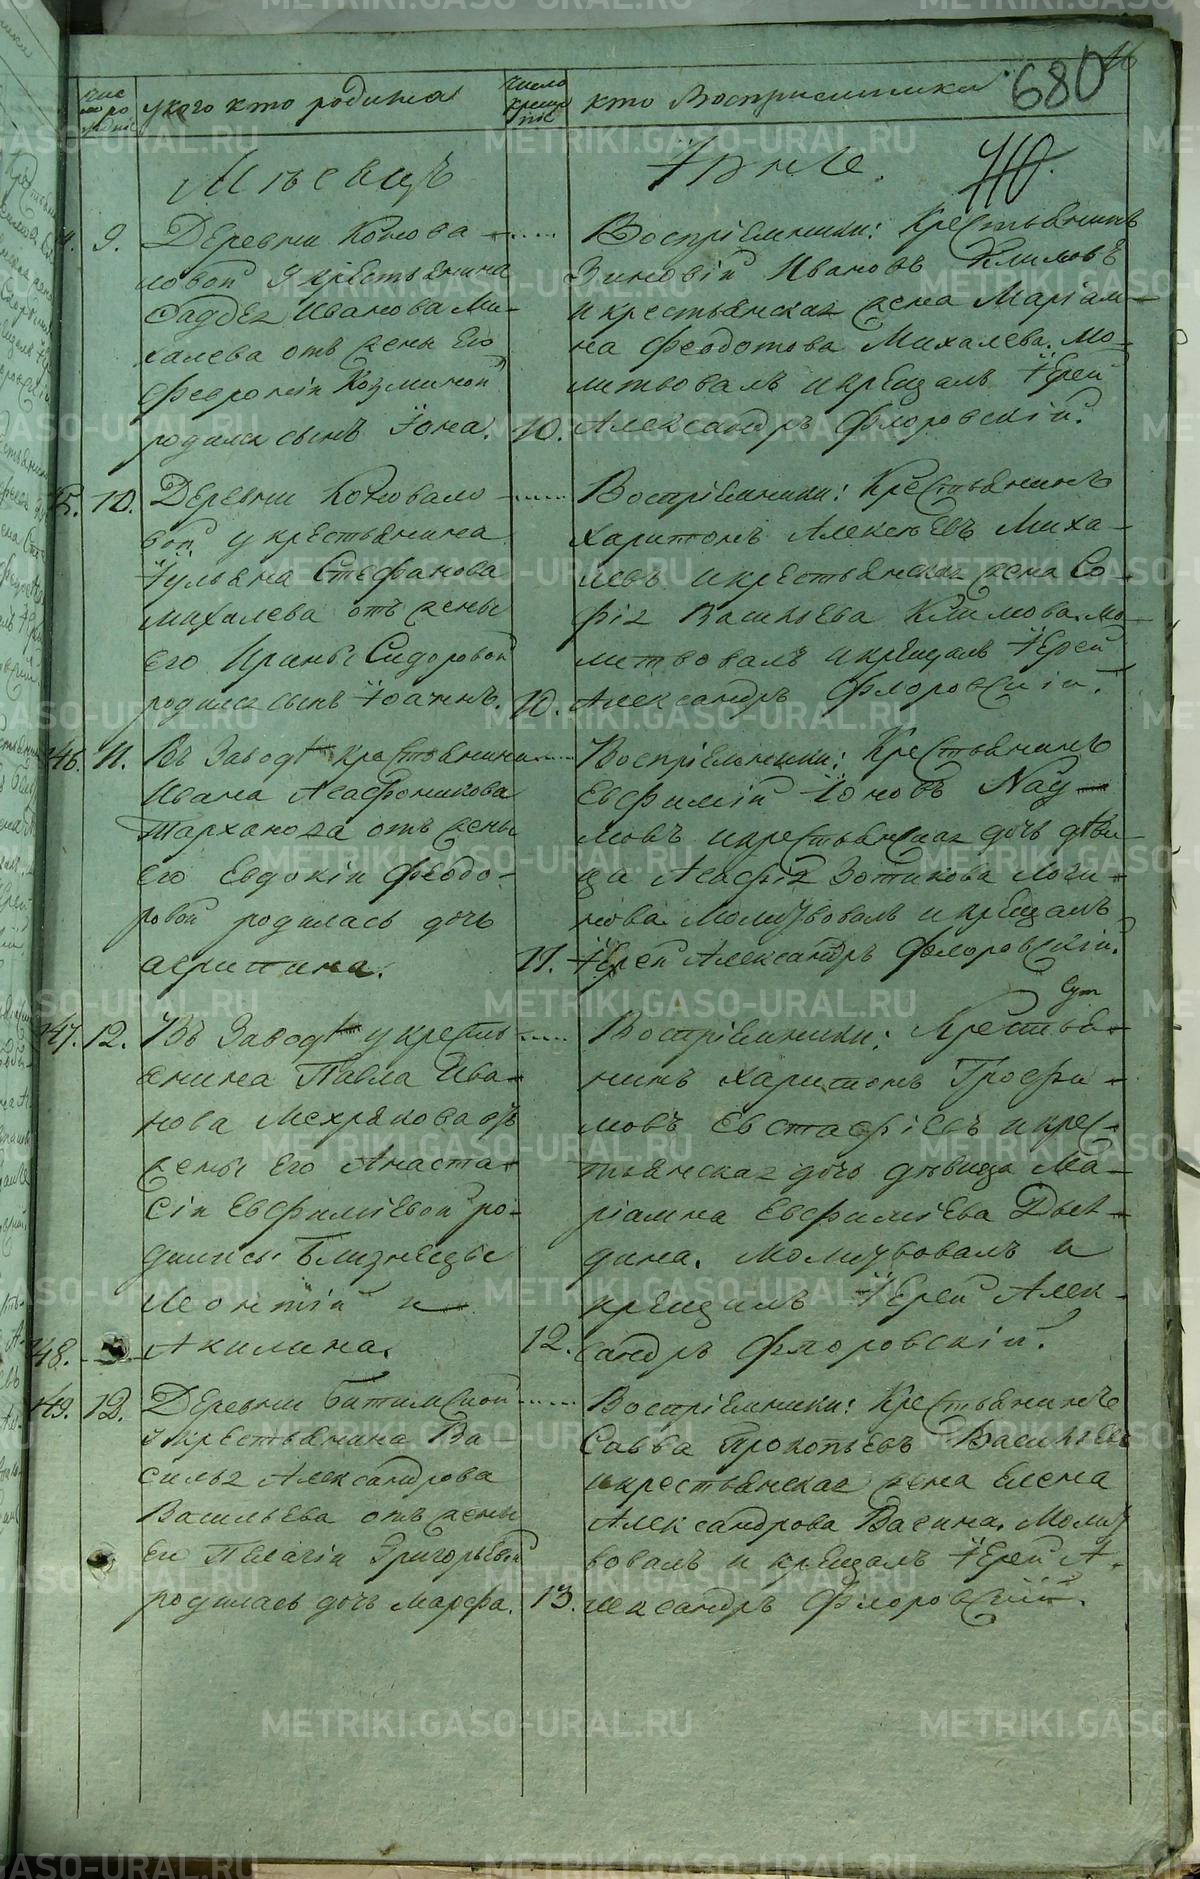 16
680
710.
Число рожденія
у кого кто родился
число крещенія
кто Воспріемники
Мѣсяцъ
Іюнь.
4. 9.
Деревни Конова-
ловой у крестьянина
Фаддея Иванова Ми-
халева отъ жены его
Февроніи Козминой
родился сынъ Іона. 10.
Воспріемники: Крестьянинъ
Зиновій Ивановъ Климовъ
и крестьянская жена Маріам-
на Феодотова Михалева. Мо-
литвовалъ и крещалъ Іерей
Александръ Флоровскій.
5. 10.
Деревни Коновало-
вой у крестьянина
Іуліана Стефанова
Михалева отъ жены
его Ирины Сидоровой
родился сынъ Іоаннъ. 10.
Воспріемники: Крестьянинъ
Харитонъ Алексѣевъ Миха-
левъ и крестьянская жена Со-
фія Васильева Климова. Мо-
литвовалъ и крещалъ Іерей
Александръ Флоровскій.
46. 11.
Въ Заводѣ крестьянина
Ивана Агафоникова
Тарханова отъ жены
его Евдокіи Феодо-
ровой родилась дочь
Агрипина. 11.
Воспріемники: Крестьянинъ
Евфимій Іоновъ Нау-
мовъ и крестьянская дочь дѣви-
ца Агафія Зотикова Логи-
нова. Молитвовалъ и крещалъ
Іерей Александръ Флоровскій.
47. 12.
Въ Заводѣ у кресть-
янина Павла Ива-
нова Мехрякова отъ
жены его Анаста-
сіи Евфиміевой ро-
дились близнецы
Леонтій и
48.
Акилина. 12.
Воспріемники: Крестья-
нинъ Харитонъ Трофи-
мовъ Евстафіевъ и крес-
тьянская дочь дѣвица Ма-
ріамна Евфиміева
дина. Молитвовалъ и
крещилъ Іерей Алек-
сандръ Флоровскій.
49. 12.
Деревни Битимской
у крестьянина Ва-
силья Александрова
Васильева отъ жены
ей Пелагіи Григорьевой
родилась дочь Марфа. 13.
Воспріемники: Крестьянинъ
Савва Прокопьевъ Васильевъ
и крестьянская жена Елена
Александрова Васина. Молит
вовалъ и крещалъ Іерей А-
лександръ Флоровскій.
METRIKI.GASO-URAL.RU